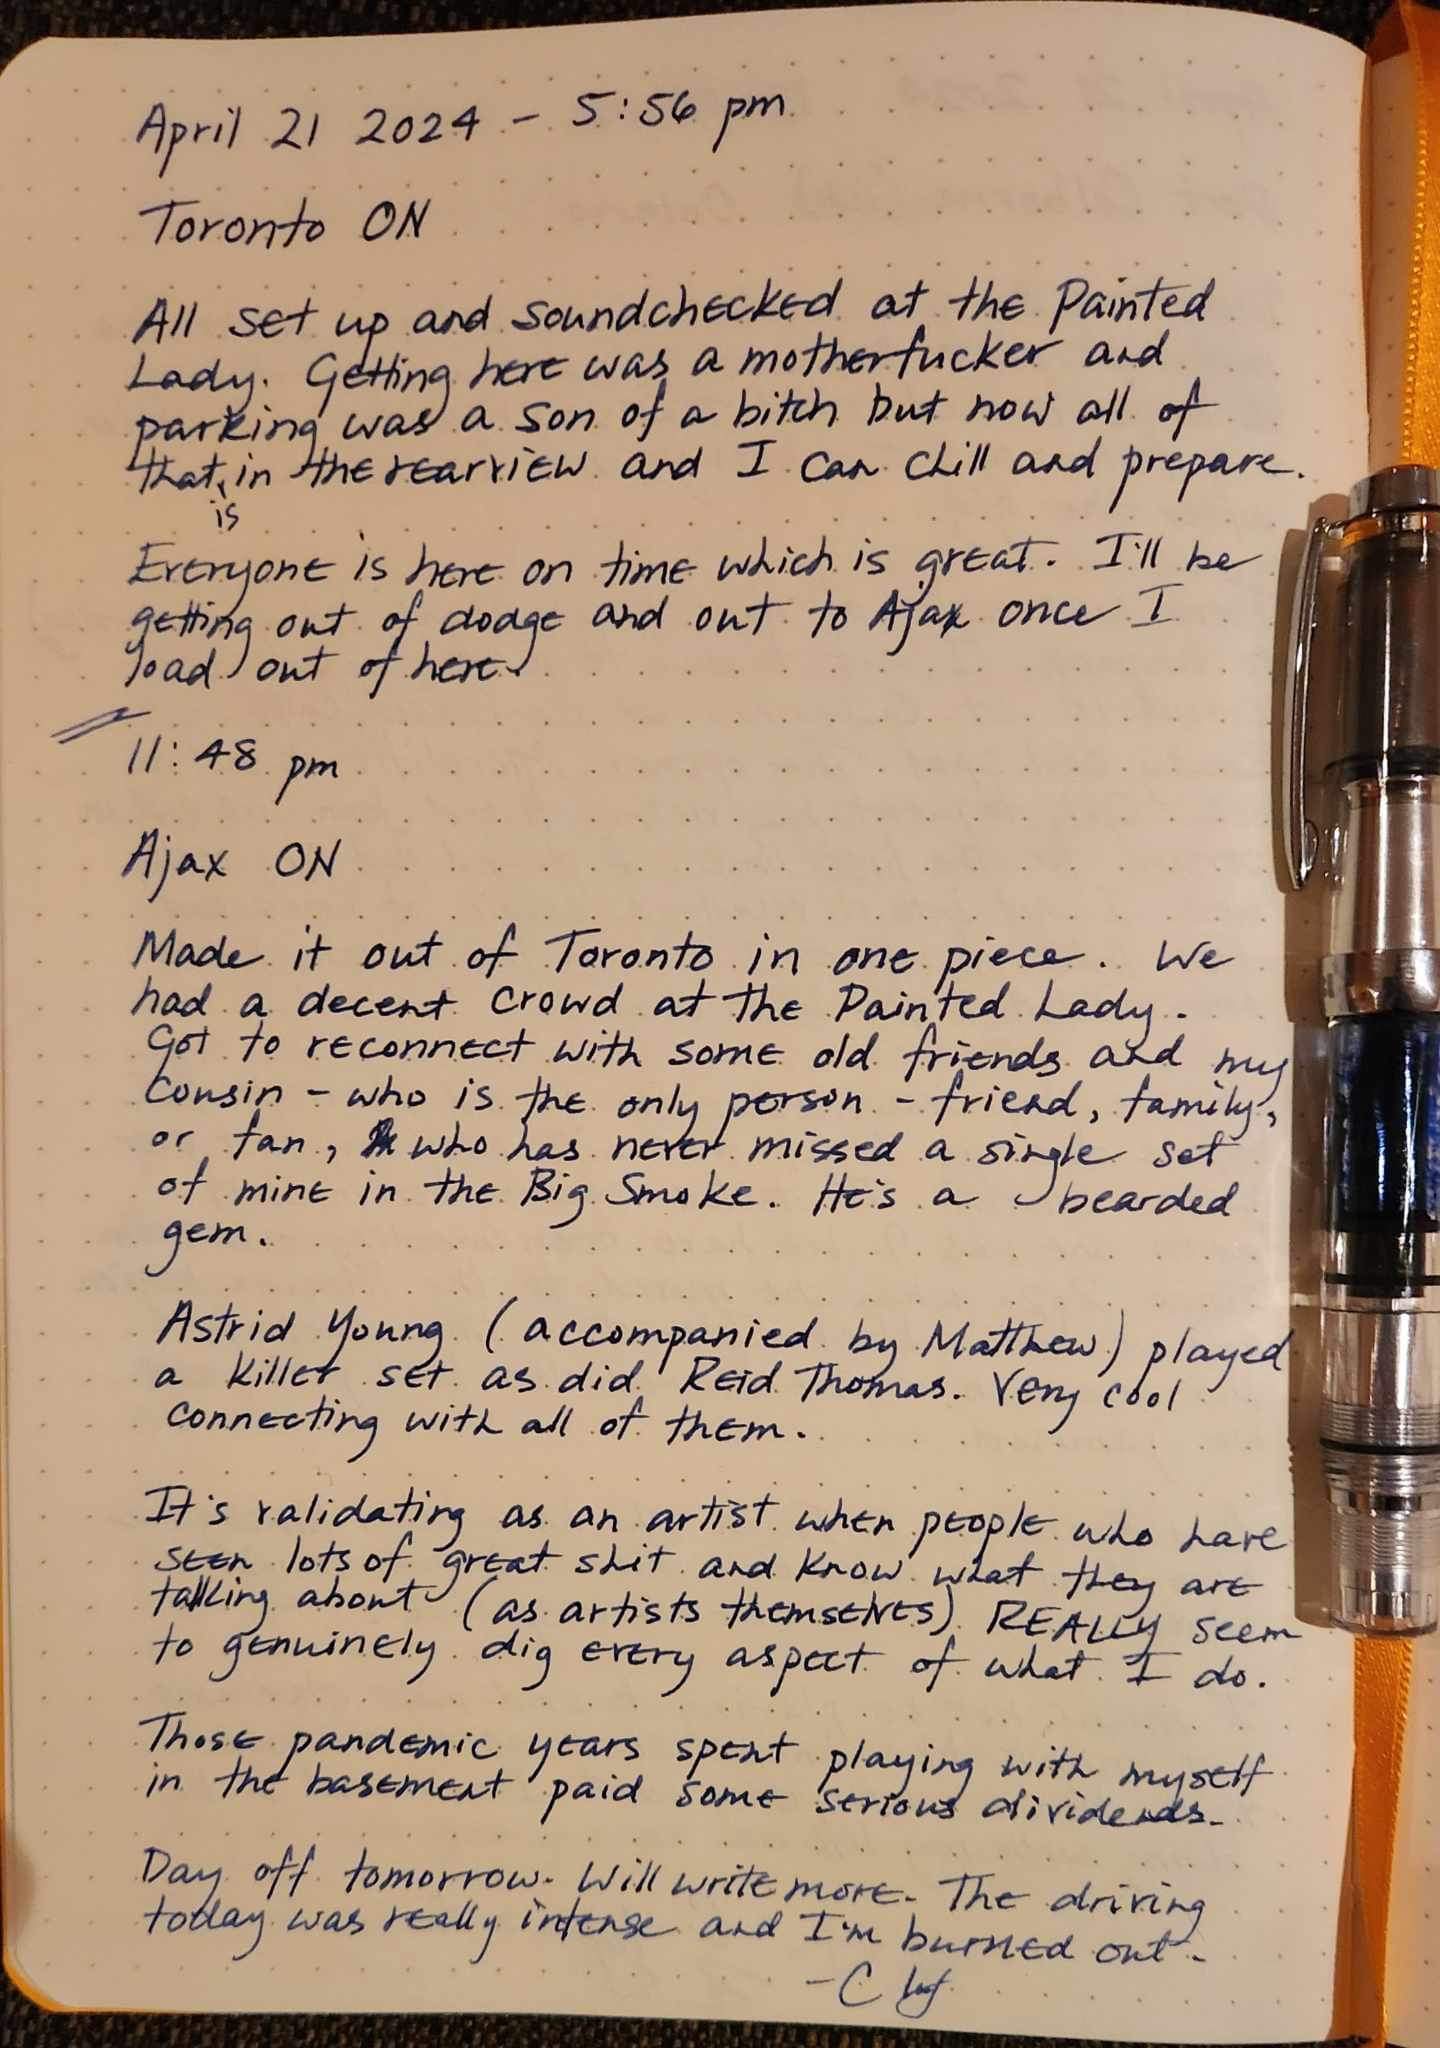 April 21 2024 - 5:56 pm
Toronto ON
All set up and soundchecked at the Painted
Lady. Getting here was a motherfucker and
parking was a son of a bitch but now all of
that is in the rearview and I can chill and prepare.
Everyone is here on time which is great. I'll be
getting out of dodge and out to Ajax once I
load out of here.
11:48 pm
Ajax ON
Made it out of Toronto in one piece. We
had a decent crowd at the Painted Lady.
Got to reconnect with some old friends and my
cousin - who is the only person - friend, family,
or fan, who has never missed a single set
of mine in the Big Smoke. He's a bearded
gem.
Astrid Young (accompanied by Matthew) played
a killer set as did Reid Thomas. Very cool
connecting with all of them.
It's validating as an artist when people who have
seen lots of great shit and know what they are
talking about (as artists themselves) REALLY seem
to genuinely dig every aspect of what I do.
Those pandemic years spent playing with myself
in the basement paid some serious dividends.
Day off tomorrow. Will write more. The driving
today was really intense and I'm burned out.
- C